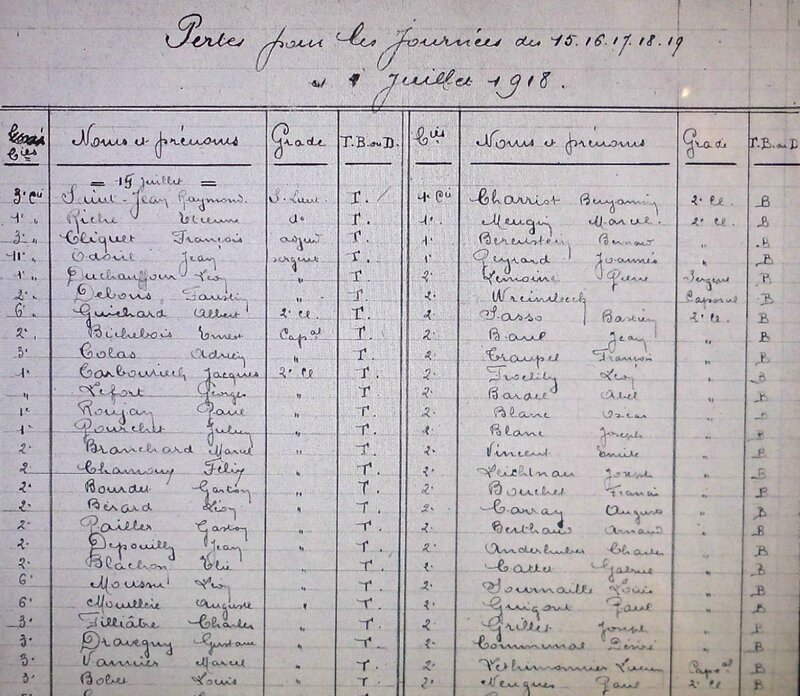 Pertes pour les journées des 15.16.17.18.19
Juillet 1918.
Cies Noms et prénoms Grade T.B. ou D. Cies Noms et prénoms Grade T.B. ou D
= 15 juillet =
3e Cie Saint-Jean Raymond S. Lieut T. 1e Cie Charriot Benjamin 2e Cl. B
1e " Riche Etienne do T. 1e Meugin Marcel 2e Cl. B
3e " Cliquet François adjud T. 1e Berenstein Bernard " B
11e " Odoul Jean sergent T. 1e Peyrard Joannès " B
1e " Duchauffour Léon " T. 2e Lemoine Pierre Sergent B
2e " Debons Faustin " T. 2e Caporal B
6e " Guichard Albert 2e Cl T. 2e Sasso Bastien 2e Cl. B
2e Bichebois Ernest Capal T. 2e Baul Jean " B
3e Colas Adrien " T. 2e Traupel François " B
1e Carbouriech Jacques 2e Cl T. 2e Léon " B
" Lefort Georges " T. 2e Bardel Abel " B
1e Roujan Paul " T. 2e Blanc Oscar " B
1e Pourchet Julien " T. 2e Blanc Joseph " B
2e Branchard Marcel " T. 2e Vincent Emile " B
2 Chamoux Félix " T. 2e Leichtnau Joseph " B
2e Bourdet Gaston " T. 2e Bouchet Francis " B
2e Bérard Léon " T. 2e Carray Auguste " B
2e Pailler Gaston " T. 2e Berthaud Arnaud " B
2e Depouilly Jean " T. 2e Anderhuber Charles " B
2e Blachon Elie " T. 2e Cattet Gabriel " B
6e Moussu Léon " T. 2e Tournaille Louis " B
6e Mouillere Auguste " T. 2e Guigont Paul " B
3e Filliâtre Charles " T. 2e Grillet Joseph " B
3e Dravegny Gustave " T. 2e Communal Désiré " B
3e Vannier Marcel " T. 2e Lucien Capoal B
3e Bobet Louis " T. 2e Neugues Paul 2e Cl B